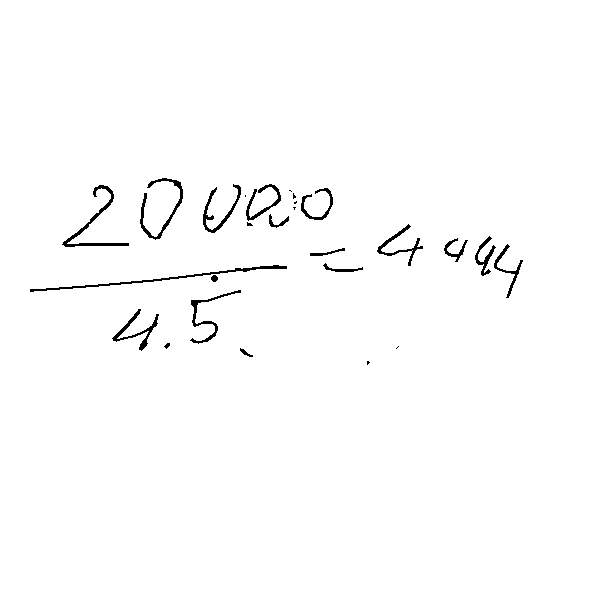 20000
4.5
= 4444